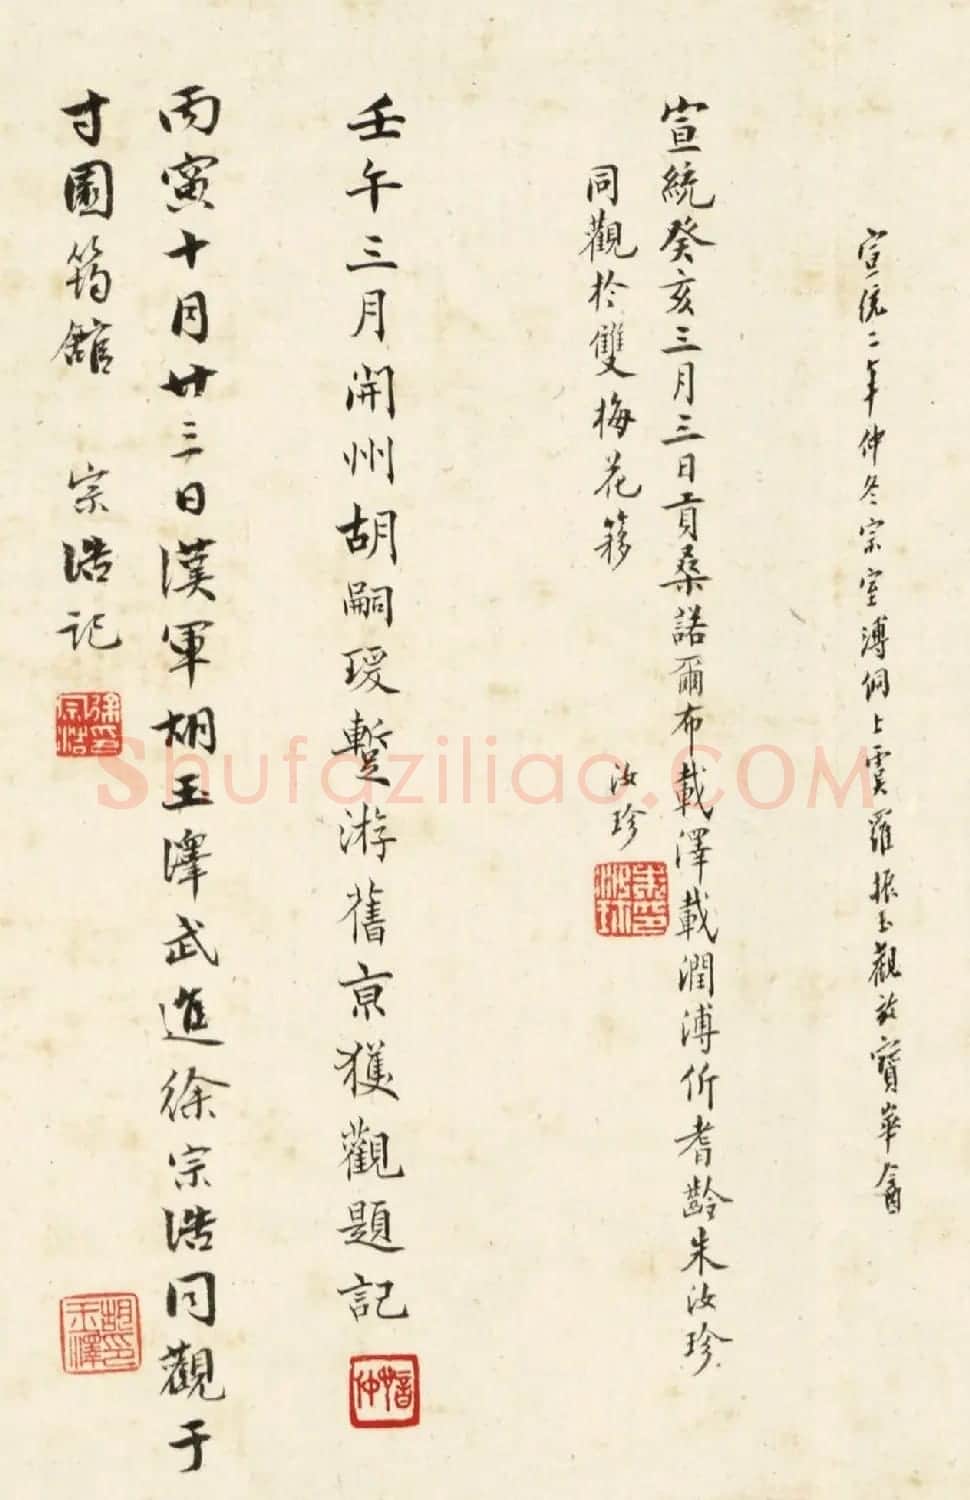 宣統二年仲冬宗室溥侗上虞羅振玉觀於寶華盦
宣統癸亥三月三日貢桑諾爾布載澤載潤溥伒耆齡朱汝珍
同觀於雙梅花簃
汝珍
朱印汝珍
壬午三月開州胡嗣瑗蹔游舊京獲觀題記
愔仲
丙寅十月廿三日漢軍胡玉澤武進徐宗浩同觀于
寸園筠館 宗浩記
徐印宗浩
胡印玉澤
Shufaziliao.COM